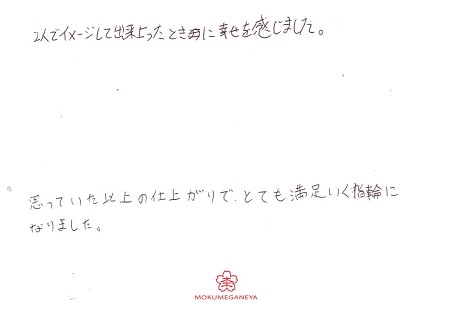 2人でイメージして出来上ったとき毎に幸せを感じました。
思っていた以上の仕上がりで、とても満足いく指輪に
なりました。
MOKUMEGANEYA